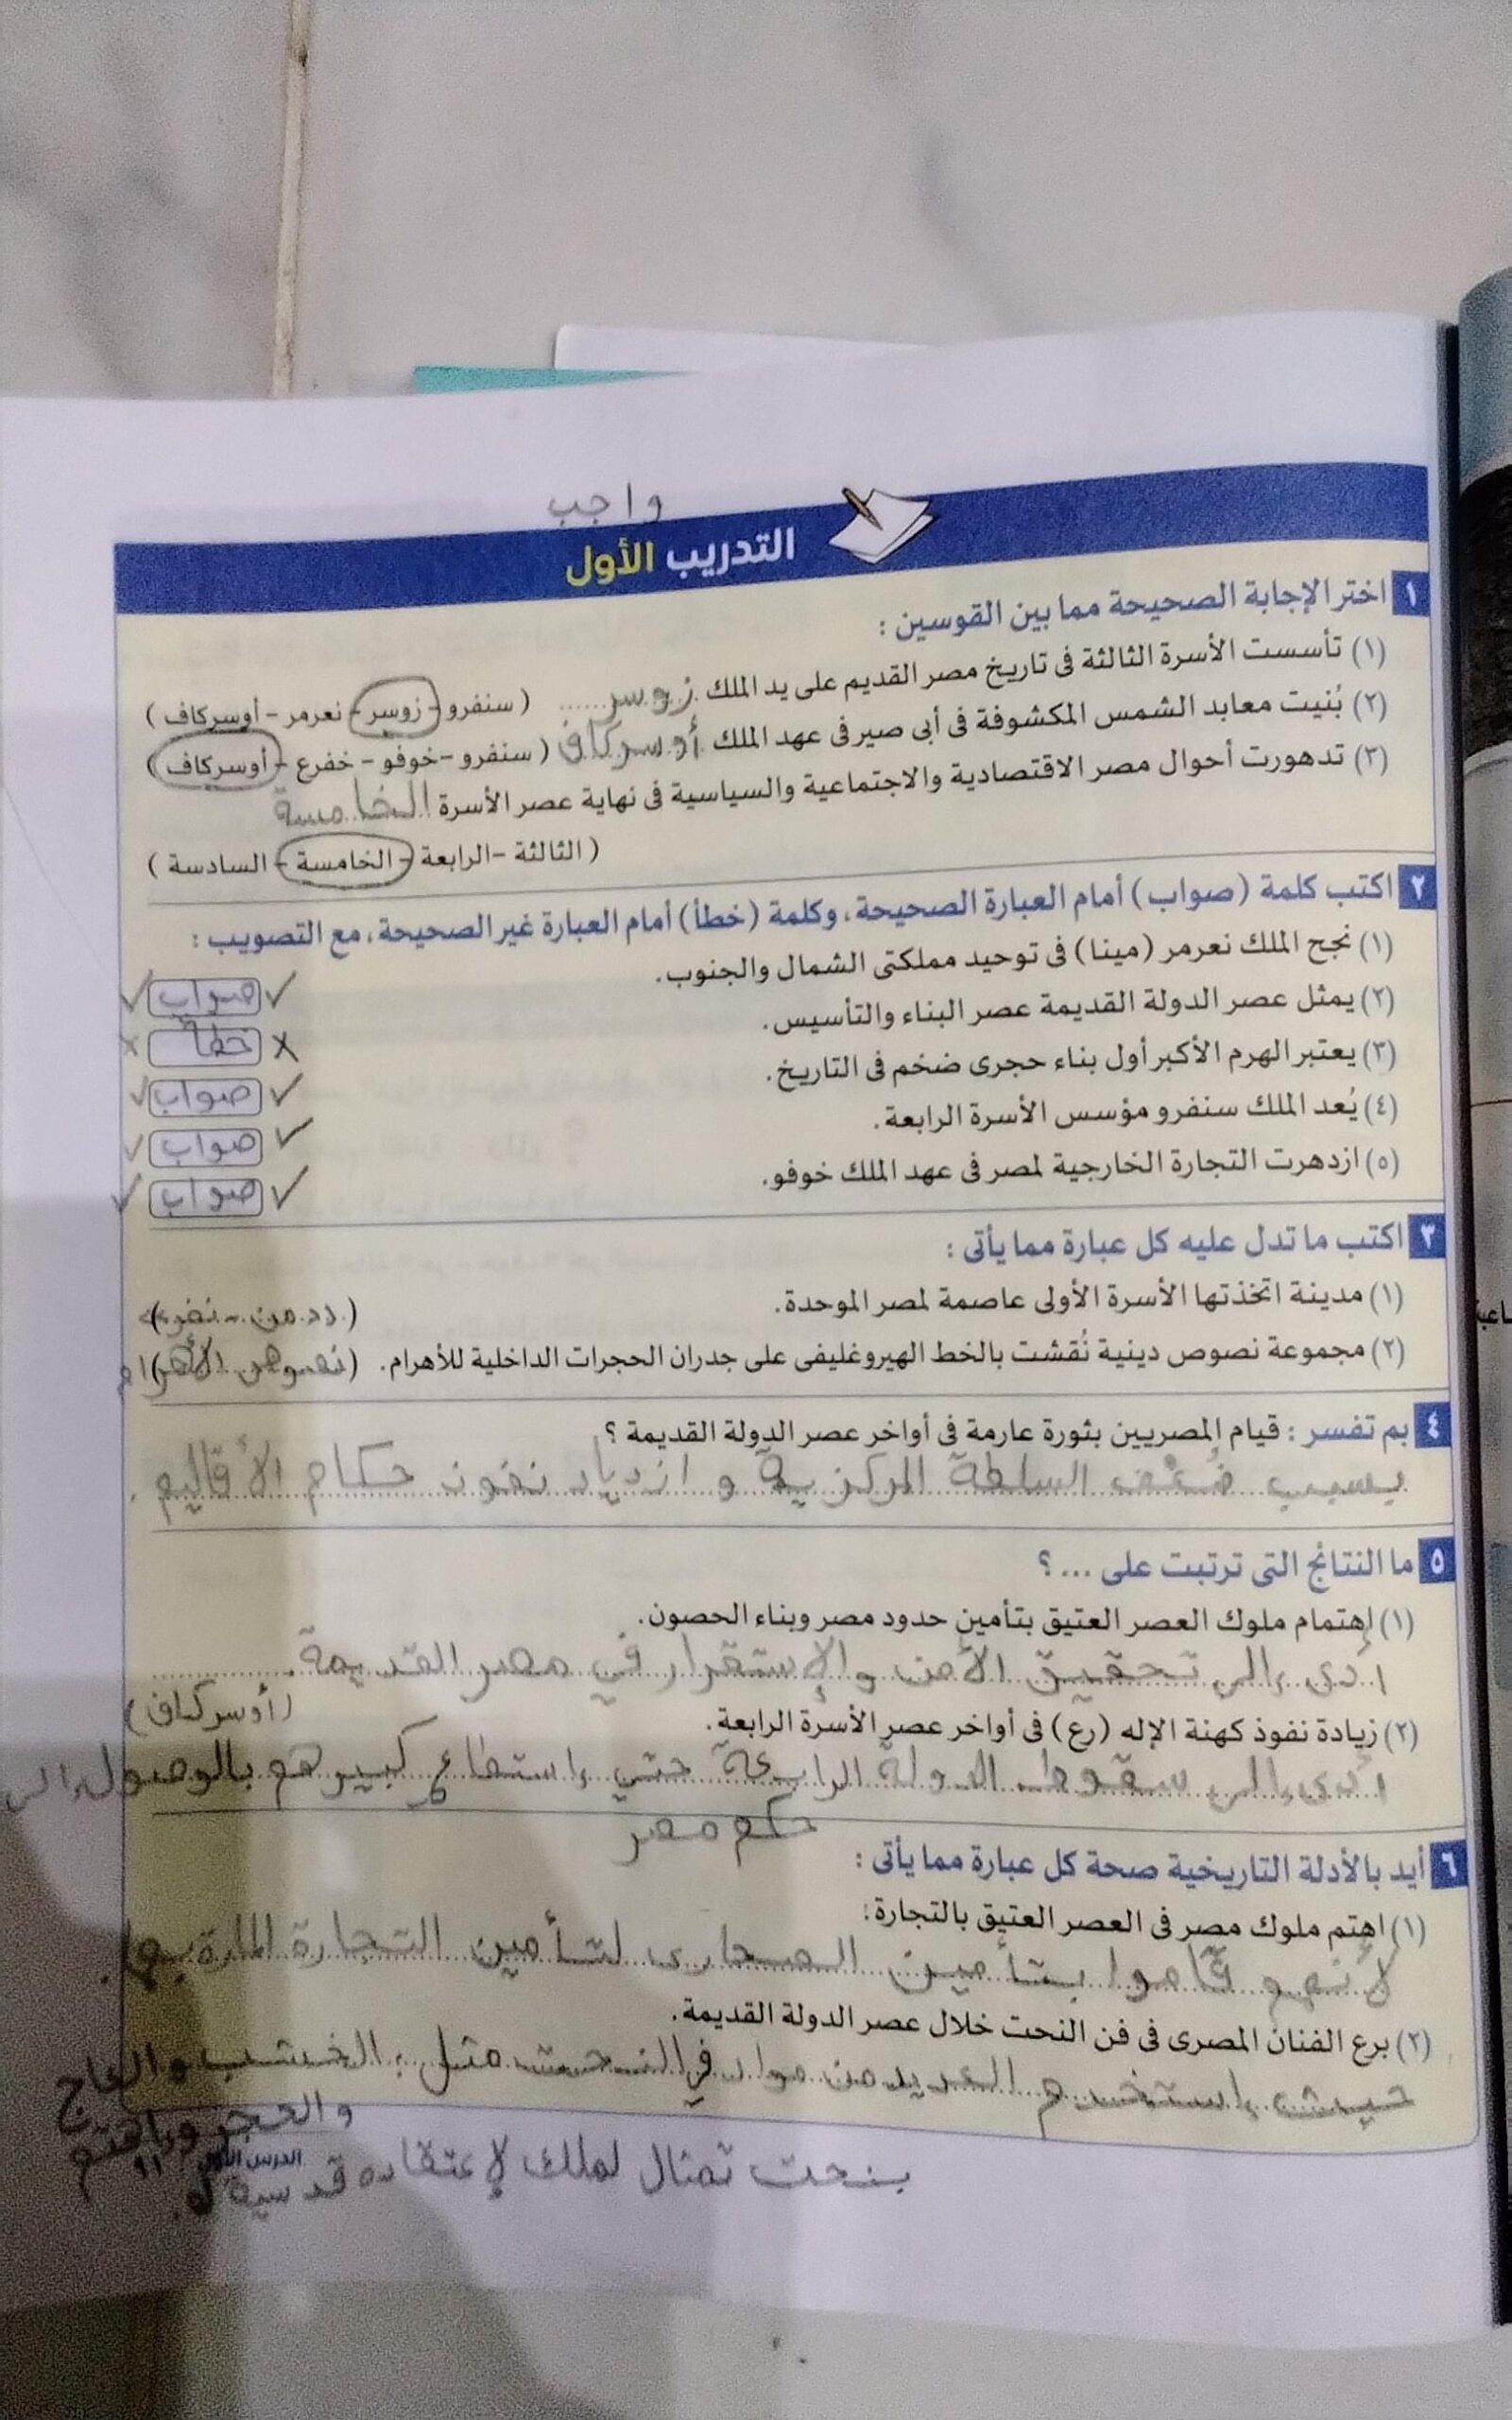 واجب
التدريب الأول
١ اختر الإجابة الصحيحة مما بين القوسين :
(١) تأسست الأسرة الثالثة فى تاريخ مصر القديم على يد الملك زوسر
( سنفرو - زوسر - نعرمر - أوسركاف )
(٢) بُنيت معابد الشمس المكشوفة فى أبى صير فى عهد الملك أوسركاف
( سنفرو - خوفو - خفرع - أوسركاف )
(٣) تدهورت أحوال مصر الاقتصادية والاجتماعية والسياسية فى نهاية عصر الأسرة الخامسة
( الثالثة - الرابعة - الخامسة - السادسة )
٢ اكتب كلمة (صواب) أمام العبارة الصحيحة، وكلمة (خطأ) أمام العبارة غير الصحيحة، مع التصويب :
(١) نجح الملك نعرمر (مينا) فى توحيد مملكتى الشمال والجنوب. ✓ صواب ✓
(٢) يمثل عصر الدولة القديمة عصر البناء والتأسيس. x خطأ x
(٣) يعتبر الهرم الأكبر أول بناء حجرى ضخم فى التاريخ. ✓ صواب ✓
(٤) يُعد الملك سنفرو مؤسس الأسرة الرابعة. ✓ صواب ✓
(٥) ازدهرت التجارة الخارجية لمصر فى عهد الملك خوفو. ✓ صواب ✓
٣ اكتب ما تدل عليه كل عبارة مما يأتى :
(١) مدينة اتخذتها الأسرة الأولى عاصمة لمصر الموحدة.
(٢) مجموعة نصوص دينية نُقشت بالخط الهيروغليفى على جدران الحجرات الداخلية للأهرام. (نصوص الأهرام)
٤ بم تفسر : قيام المصريين بثورة عارمة فى أواخر عصر الدولة القديمة ؟
بسبب ضُعف السلطة المركزية و ازدياد نفوذ حكام الأقاليم .
٥ ما النتائج التى ترتبت على ... ؟
(١) إهتمام ملوك العصر العتيق بتأمين حدود مصر وبناء الحصون.
أدى إلى تحقيق الأمن والإستقرار في مصر القديمة.
(٢) زيادة نفوذ كهنة الإله (رع) فى أواخر عصر الأسرة الرابعة.
(أوسركاف)
أدى إلى سقوط الدولة الرابعة حتي إستطاع كبيرهم بالوصول إلى
حكم مصر
٦ أيد بالأدلة التاريخية صحة كل عبارة مما يأتى :
(١) اهتم ملوك مصر فى العصر العتيق بالتجارة:
لأنهم قاموا بتأمين الصحارى لتأمين التجارة المارة بها.
(٢) برع الفنان المصرى فى فن النحت خلال عصر الدولة القديمة.
حيث إستخدم العديد من مواد في النحت مثل : الخشب والعاج
والحجر وإهتم
بنحت تمثال لملك لإعتقاده قدسية
الدرس الأول
١١